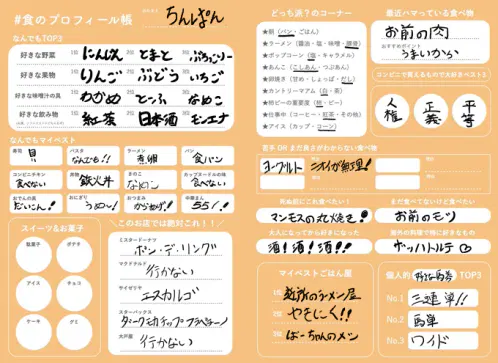 #食のプロフィール帳
ちんぱん
なんでもTOP3
好きな野菜 1位 にんじん 2位 とまと 3位 ぶろっこりー
好きな果物 1位 りんご 2位 ぶどう 3位 いちご
好きな味噌汁の具 1位 わかめ 2位 とーふ 3位 なめこ
好きな飲み物 1位 紅茶 2位 日本酒 3位 モンエナ
なんでもマイベスト
寿司 貝
パスタ なんでも!!
ラーメン 煮卵
パン 食パン
コンビニチキン 食べない
丼物 鉄火丼
きのこ なめこ
カップヌードルの味 食べない
おでんの具 だいこん!
おにぎり うめー!
おつまみ からあげ!
中華まん 551!
スイーツ&お菓子
駄菓子
ポテチ
アイス
チョコ
ケーキ
グミ
＼このお店では絶対これ！！／
ミスタードーナツ
ポン・デ・リング
マクドナルド
行かない
サイゼリヤ
エスカルゴ
スターバックス
ダークモカチップフラペチーノ
大戸屋
行かない
どっち派？のコーナー
★朝（パン・ごはん）
★ラーメン（醤油・塩・味噌・豚骨）
★ポップコーン（塩・キャラメル）
★あんこ（こしあん・つぶあん）
★卵焼き（甘め・しょっぱ・だし）
★カントリーマアム（白・茶）
★柿ピーの重要度（柿・ピー）
★仕事中（コーヒー・紅茶・その他）
★アイス（カップ・コーン）
最近ハマっている食べ物
お前の肉
おすすめポイント
うまいから
コンビニで買えるもので大好きベスト3
人権
正義
平等
苦手 OR まだ良さがわからない食べ物
ヨーグルト
ニオイが無理!
死ぬ前にこれ食べたい！
マンモスの丸焼き!
まだ食べてないけど食べたい
お前のモツ
大人になってから好きになった
酒!酒!酒!!
海外の料理で特に好きなもの
ヤンパルトテ
マイベストごはん屋
1位
のラーメン屋
2位 やきにく!!
3位 ばーちゃんのメシ
個人的 好きな馬券 TOP3
No.1 三連単!!
No.2 馬単
No.3 ワイド